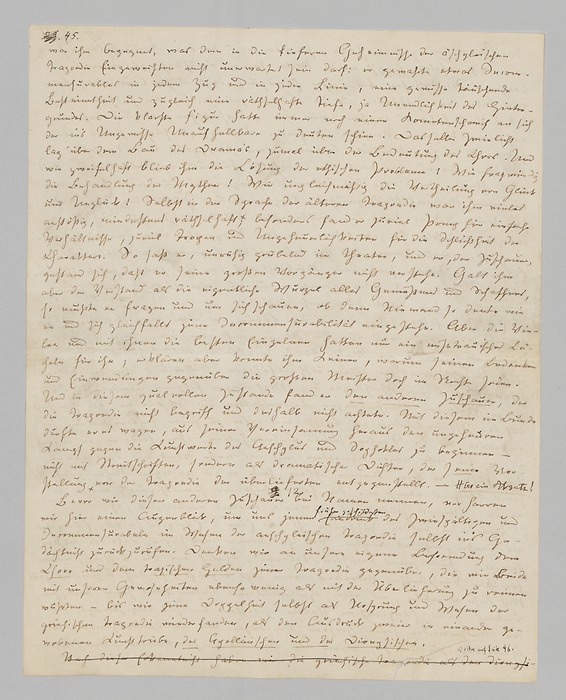 45.
war ihm begegnet, was dem in die tieferen Geheimnisse der äschyleischen
Tragoedie Eingeweihten nicht unerwartet sein darf: er gewahrte etwas Incom-
mensurables in jedem Zug und in jeder Linie, eine gewisse täuschende
Bestimmtheit und zugleich eine räthselhafte Tiefe, ja Unendlichkeit des Hinter-
grundes. Die klarste Figur hatte immer noch einen Kometenschweif an sich
der ins Ungewisse Unaufhellbare zu deuten schien. Dasselbe Zwielicht
lag über dem Bau des Drama's, zumal über der Bedeutung des Chors. Und
wie zweifelhaft blieb ihm die Lösung der ethischen Probleme! Wie fragwürdig
die Behandlung der Mythen! Wie ungleichmäßig die Vertheilung von Glück
und Unglück! Selbst in der Sprache der älteren Tragoedie war ihm vieles
anstößig, mindestens räthselhaft; besonders fand er zuviel Pomp für einfache
Verhältnisse, zuviel Tropen und Ungeheuerlichkeiten für die Schlichtheit der
Charaktere. So saß er, unruhig grübelnd im Theater, und er, der Zuschauer,
gestand sich, daß er seine großen Vorgänger nicht verstehe. Galt ihm
aber der Verstand als die eigentliche Wurzel alles Geniessens und Schaffens,
so mußte er fragen und um sich schauen, ob denn Niemand so denke wie
er und sich gleichfalls jene Incommensurabilität eingestehe. Aber die Vie-
len und mit ihnen die besten Einzelnen hatten nur ein mißtrauisches Lä-
cheln für ihn, erklären aber konnte ihm Keiner, warum seinen Bedenken
und Einwendungen gegenüber die großen Meister doch im Recht seien.
Und in diesem qualvollen Zustande fand er den anderen Zuschauer, der
die Tragoedie nicht begriff und deshalb nicht achtete. Mit diesem im Bunde
durfte er es wagen, aus seiner Vereinsamung heraus den ungeheuren
Kampf gegen die Kunstwerke des Aeschylus und Sophokles zu beginnen —
nicht mit Streitschriften, sondern als dramatischer Dichter, der seine Vor-
stellung von der Tragoedie der überlieferten entgegenstellt. —
12
Bevor wir diesen anderen Zuschauer bei Namen nennen, verharren
wir hier einen Augenblick, um uns jenen früher geschilderten Eindruck des Zwiespältigen und
Incommensurabeln im Wesen der aeschyleischen Tragoedie selbst ins Ge-
dächtniß zurückzurufen. Denken wir an unsere eigene Befremdung dem
Chore und dem tragischen Helden jener Tragoedie gegenüber, die wir Beide
mit unseren Gewohnheiten ebensowenig als mit der Überlieferung zu reimen
wußten — bis wir jene Doppelheit selbst als Ursprung und Wesen der
griechischen Tragoedie wiederfanden, als den Ausdruck zweier in einander ge-
wobenen Kunsttriebe, des Apollinischen und des Dionysischen.
Nach dieser Erkenntniß haben wir die griechische Tragoedie als den dionysi-